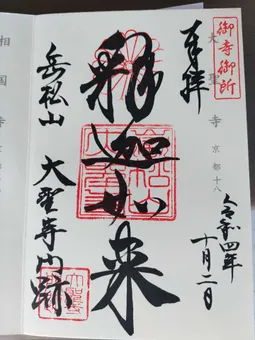 御寺御所
奉拝
大聖寺 京都十八
令和四年
十月二日
釋迦如来
岳松山 大聖寺門跡
相国寺